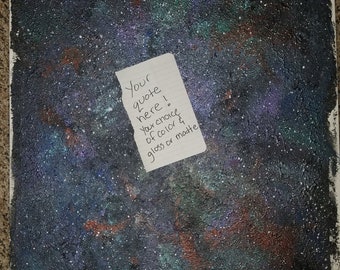 Your
quote
here!
Your choice
of color &
gloss or matte